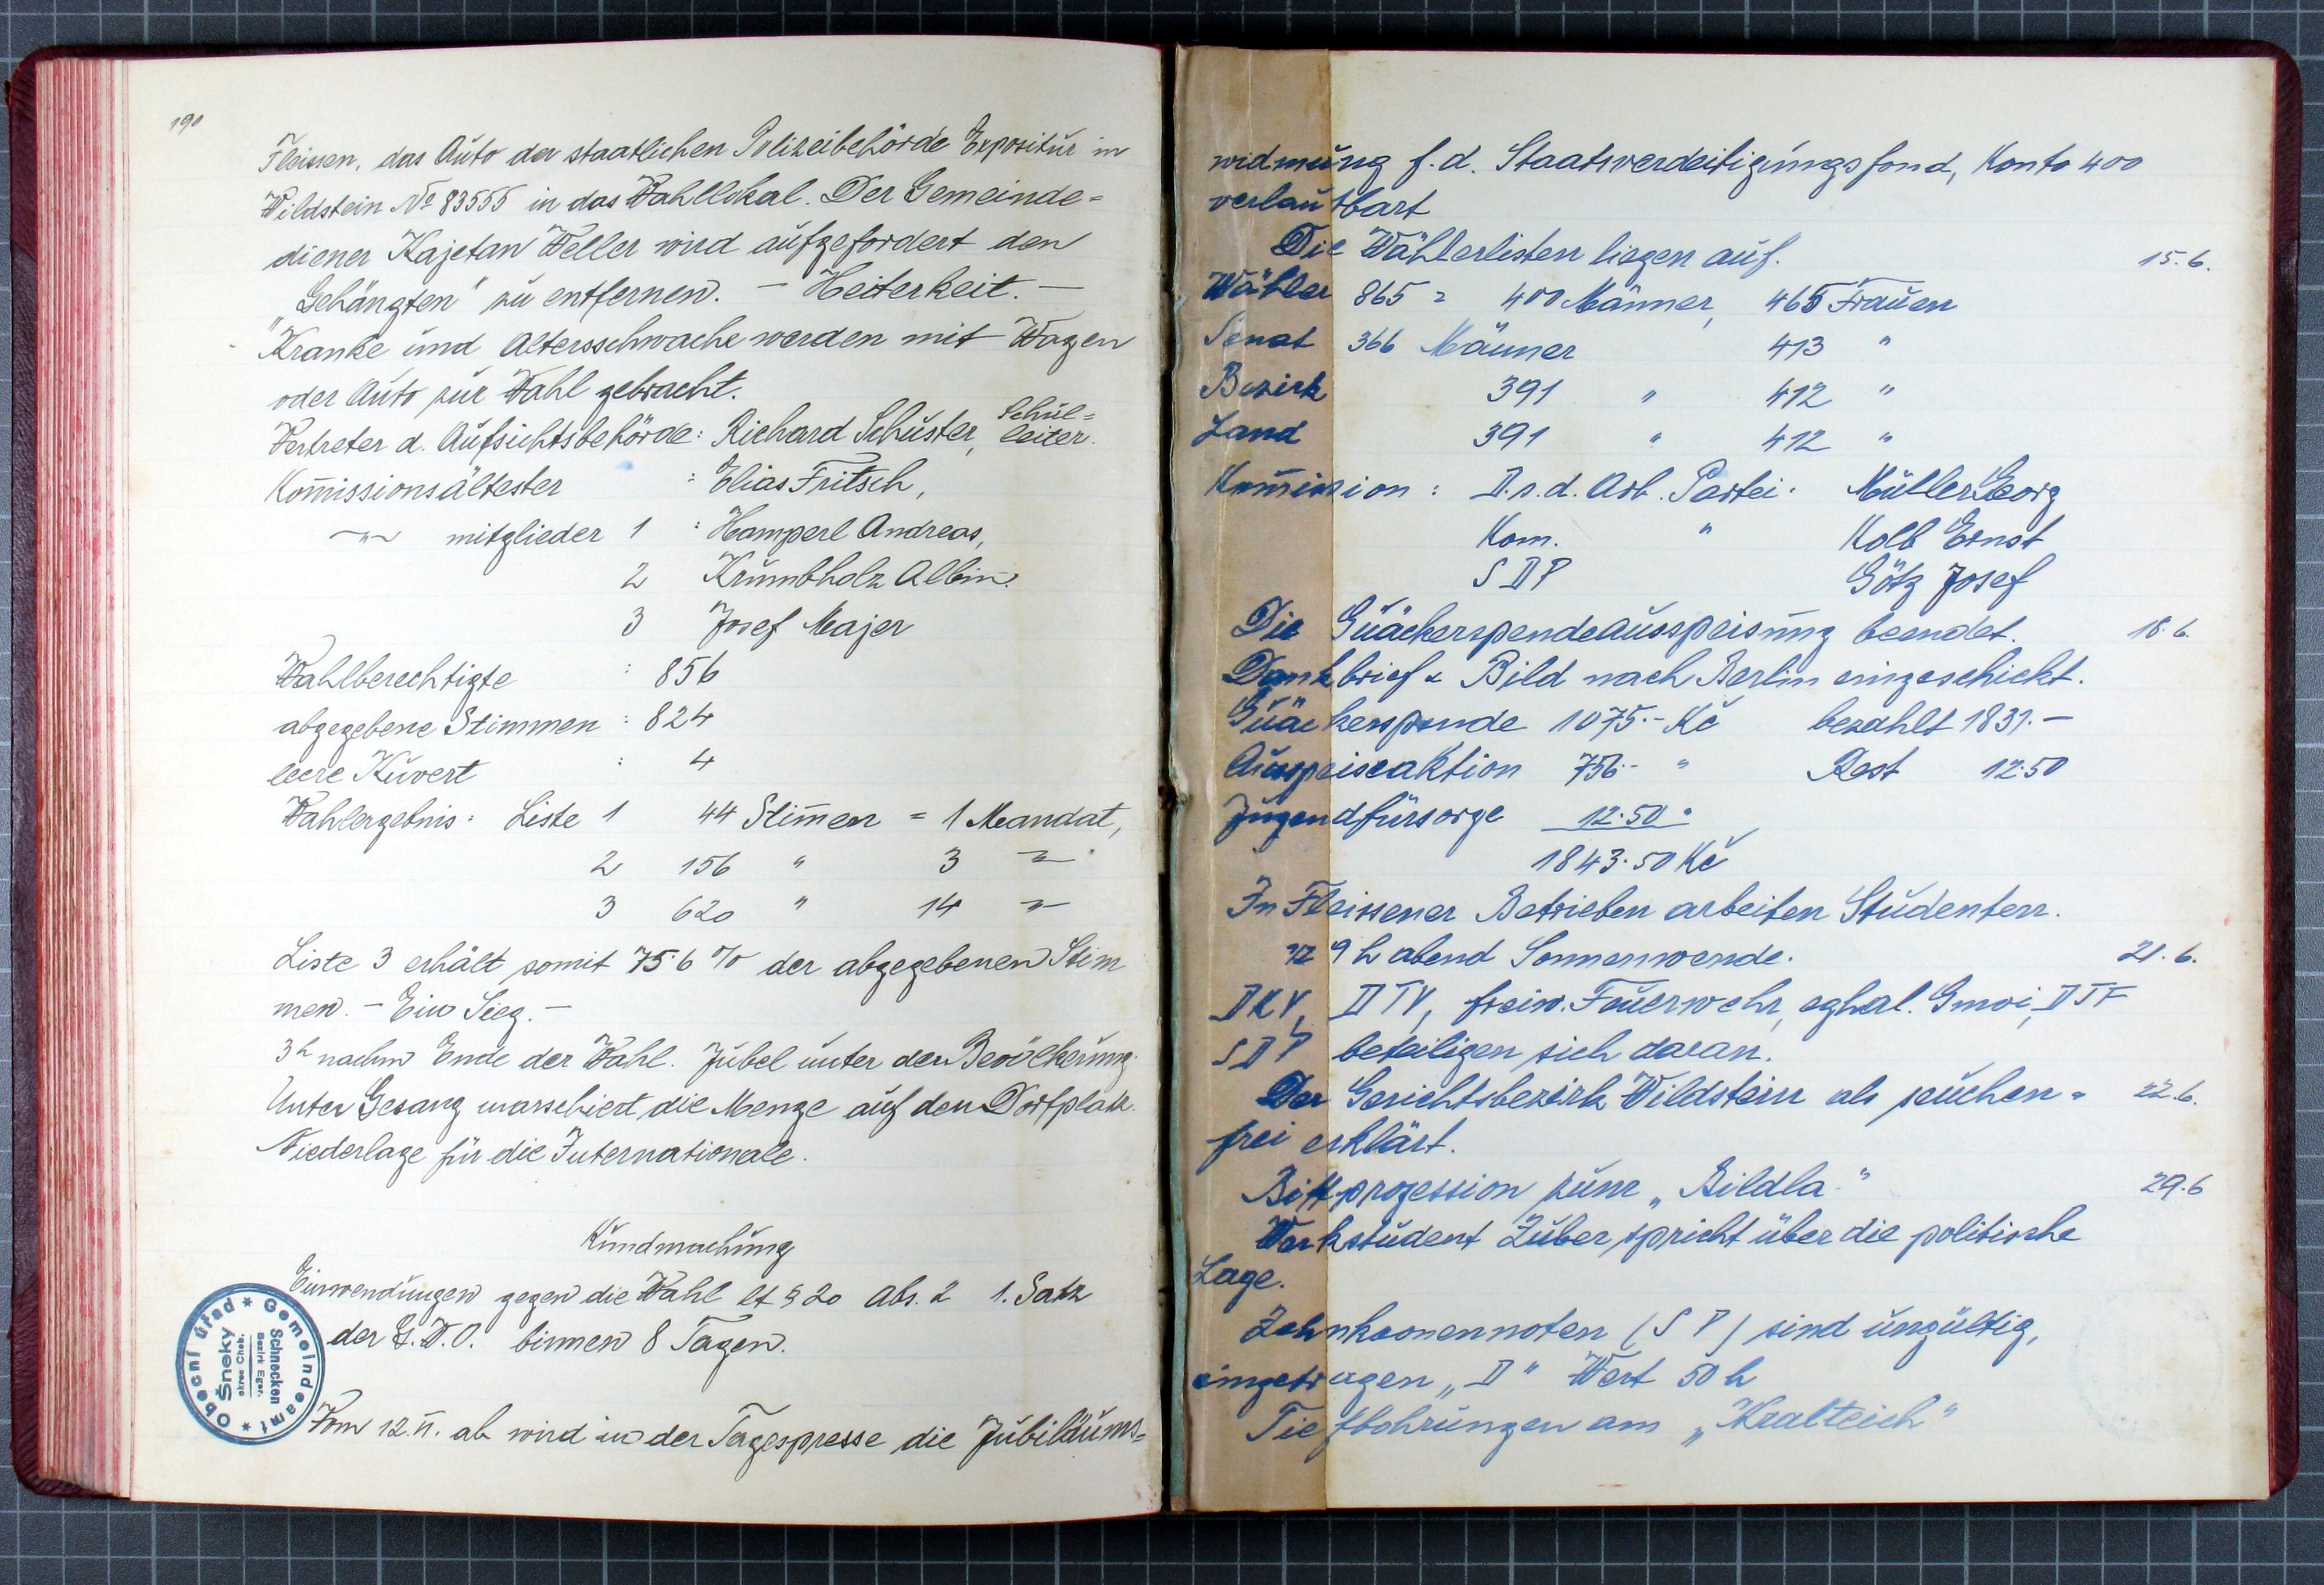 190
Fleissen, das Auto der staatlichen Polizeibehörde Expositur in
Wildstein № 83555 in das Wahllokal. Der Gemeinde=
diener Kajetan Weller wird aufgefordert den
„Gehängten" zu entfernen. – Heiterkeit. –
Kranke und Altersschwache werden mit Wagen
oder Auto zur Wahl gebracht.
Vertreter d. Aufsichtsbehörde: Richard Schuster, Schul=
leiter.
Kom̄issionsältester : Elias Fritsch,
–"– mitglieder 1 : Hamperl Andreas,
2 Krumbholz Albin.
3 Josef Majer
Wahlberechtigte : 856
abgegebene Stimmen : 824
leere Kuvert : 4
Wahlergebnis: Liste 1 44 Stim̄en = 1 Mandat,
2 156 " 3 –"–
3 620 " 14 –"–
Liste 3 erhält somit 75·6 % der abgegebenen Stim
men. – Ein Sieg. –
3h nachm Ende der Wahl. Jubel unter der Bevölkerung.
Unter Gesang marschiert die Menge auf den Dorfplatz.
Niederlage für die Internationale.
Kundmachung
Einwendungen gegen die Wahl lt § 20 Abs. 2 1. Satz
der G.W.O. binnen 8 Tagen.
* Gemeindeamt * Obecní úřad
Schnecken
Bezirk Eger.
okres Cheb.
Šneky
Vom 12.VI. ab wird in der Tagespresse die Jubiläums=
widmung f. d. Staatsverdeitigungsfond, Konto 400
verlautbart
Die Wählerlisten liegen auf. 15.6.
Wähler 865 = 400 Männer, 465 Frauen
Senat 366 Männer 413 "
Bezirk 391 " 412 "
Land 391 " 412 "
Kom̄ission: D.s.d. Arb. Partei. Müller Georg
Kom. " Kolb Ernst
SDP Götz Josef
Die Guäckerspendeausspeisung beendet. 18.6.
Dankbrief & Bild nach Berlin eingeschickt.
Guäckerspende 1075.- Kč bezahlt 1831.–
Ausspeiseaktion 756.- " Rest 12·50
Jugendfürsorge 12·50 "
1843·50 Kč
In Fleissener Betrieben arbeiten Studenten.
9 h abend Sonnenwende. 21.6.
DKV, DTV, freiw. Feuerwehr, egherl. Gmoi, DJF
SDP beteiligen sich daran.
Der Gerichtsbezirk Wildstein als seuchen= 22.6.
frei erklärt.
Bittprozession zum „Bildla." 29.6
Werkstudent Zuber spricht über die politische
Lage.
Zehnkronennoten (S P) sind ungültig,
eingetragen „D" Wert 50 h
Tiefbohrungen am „Kralteich"